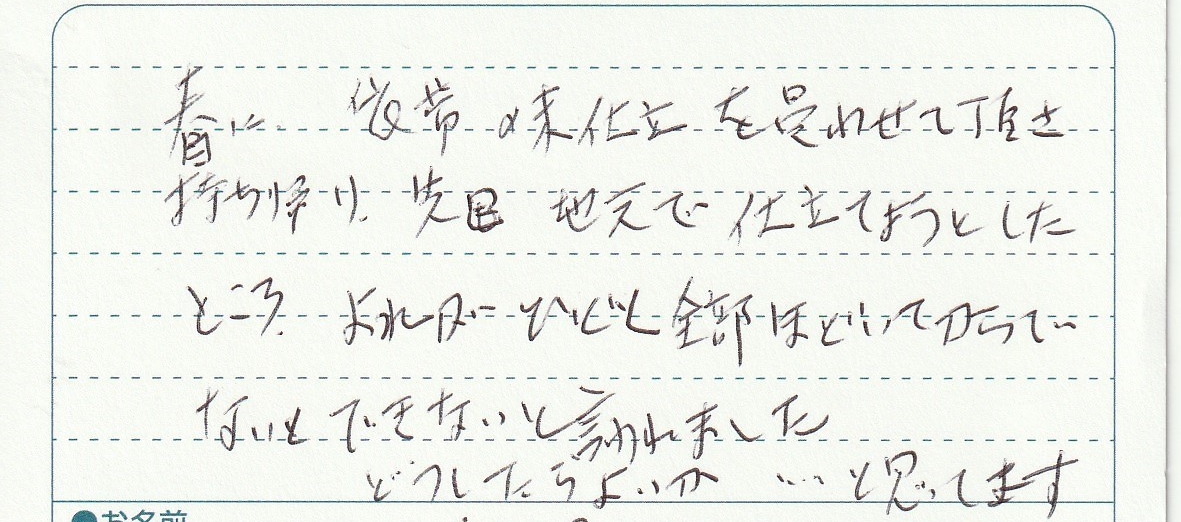 春に 袋帯の未仕立を昃れせて頂き
持ち帰り、先日 地元で仕立てようとした
ところ、よれがひどく全部ほどいてからで
ないとできないと言われました
どうしたらよいか …と思ってます
●お名前